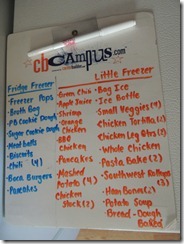 cbCAMPUS.com
Fridge Freezer
• Freezer Pops
• Broth Bag
• PB Cookie Dough
• Sugar Cookie Dough
• Meat Balls
• Biscuits
• Chili (4)
• Boca Burgers
• Pancakes
Little Freezer
• Green Chili
• Apple Juice
• Shrimp
• Orange Chicken
• BBQ Chicken
• Pancakes
• Mashed Potato (4)
• Chicken Stock (2)
• Bag Ice
• Ice Bottle
• Small Veggies (4)
• Chicken Tortilla (1)
• Chicken Leg Qtrs
• Whole Chicken
• Pasta Bake (2)
• Southwest
• Ham Bone (2)
• Potato Soup
• Bread - Dough